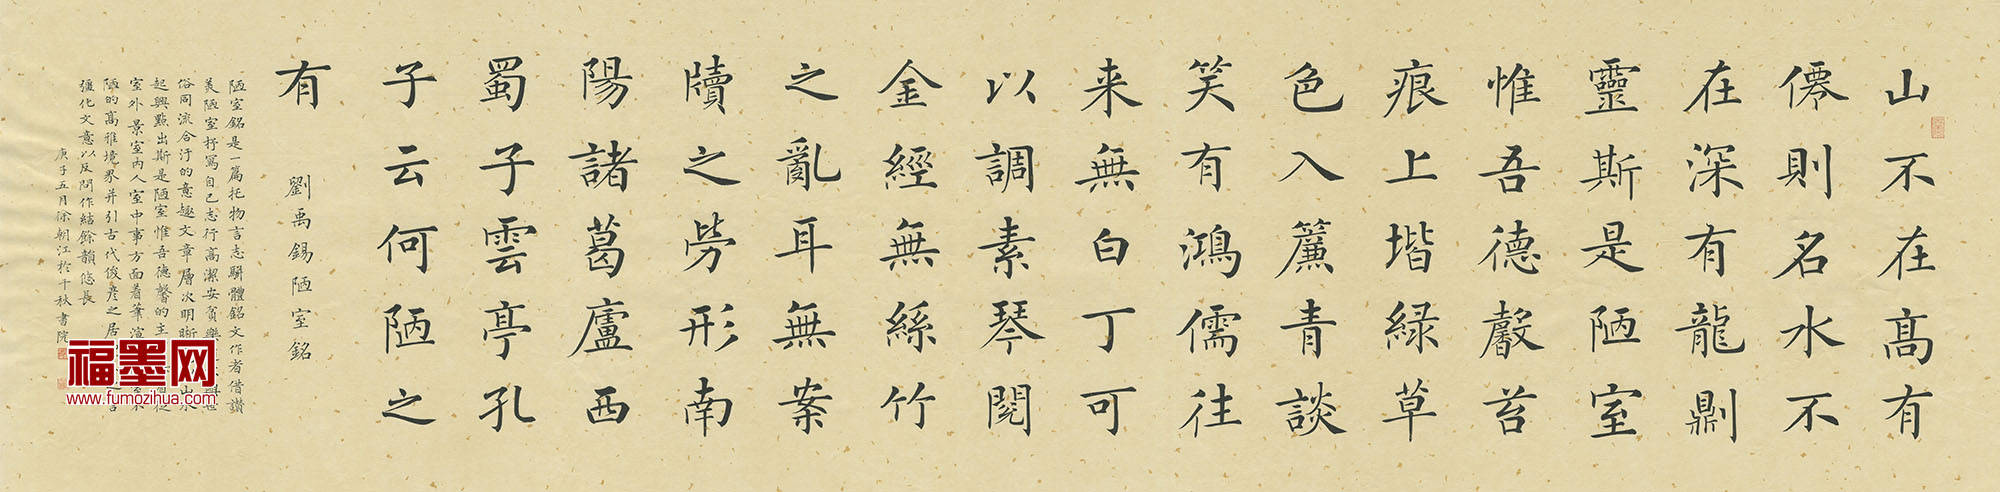 山不在高有
僊則名水不
在深有龍則
靈斯是陋室
惟吾德馨苔
痕上堦緑草
色入簾青談
笑有鴻儒往
来無白丁可
以調素琴閲
金經無絲竹
之亂耳無案
牘之勞形南
陽諸葛廬西
蜀子雲亭孔
子云何陋之
有 劉禹錫陋室銘
陋室銘是一篇托物言志駢體銘文作者借讃
美陋室抒寫自己志行高潔安貧樂與世
俗同流合汙的意趣文章層次明晰出
起興點出斯是陋室惟吾德馨的主從
室外景室内人室中事方面着筆渲不
陋的高雅境界并引古代俊彦之居言
強化文意以反問作結餘韻悠長
庚子五月徐朝江於千秋書院
福墨网
www.fumozihua.com